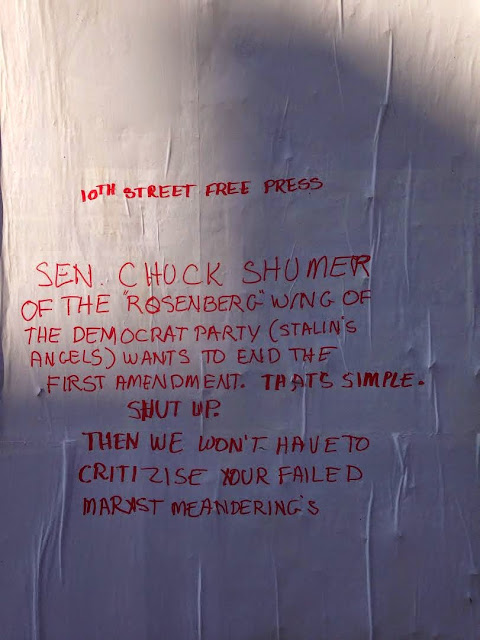 10TH STREET FREE PRESS
SEN. CHUCK SHUMER
OF THE "ROSENBERG" WING OF
THE DEMOCRAT PARTY (STALIN'S
ANGELS) WANTS TO END THE
FIRST AMENDMENT. THATS SIMPLE.
SHUT UP.
THEN WE WON'T HAVE TO
CRITIZISE YOUR FAILED
MARXST MEANDERING'S